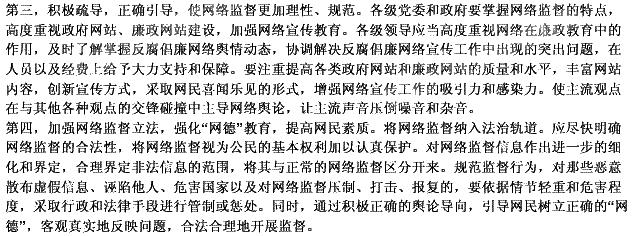 第三，积极疏导，正确引导，使网络监督更加理性、规范。各级党委和政府要掌握网络监督的特点，
高度重视政府网站、廉政网站建设，加强网络宣传教育。各级领导应当高度重视网络在廉政教育中的
作用，及时了解掌握反腐倡廉网络舆情动态，协调解决反腐倡廉网络宣传工作中出现的突出问题，在
人员以及经费上给予大力支持和保障。要注重提高各类政府网站和廉政网站的质量和水平，丰富网站
内容，创新宣传方式，采取网民喜闻乐见的形式，增强网络宣传工作的吸引力和感染力。使主流观点
在与其他各种观点的交锋碰撞中主导网络舆论，让主流声音压倒噪音和杂音。
第四，加强网络监督立法，强化“网德”教育，提高网民素质。将网络监督纳入法治轨道。应尽快明确
网络监督的合法性，将网络监督视为公民的基本权利加以认真保护。对网络监督信息作出进一步的细
化和界定，合理界定非法信息的范围，将其与正常的网络监督区分开来。规范监督行为，对那些恶意
散布虚假信息、诬陷他人、危害国家以及对网络监督压制、打击、报复的，要依据情节轻重和危害程
度，采取行政和法律手段进行管制或惩处。同时，通过积极正确的舆论导向，引导网民树立正确的“网
德”，客观真实地反映问题，合法合理地开展监督。